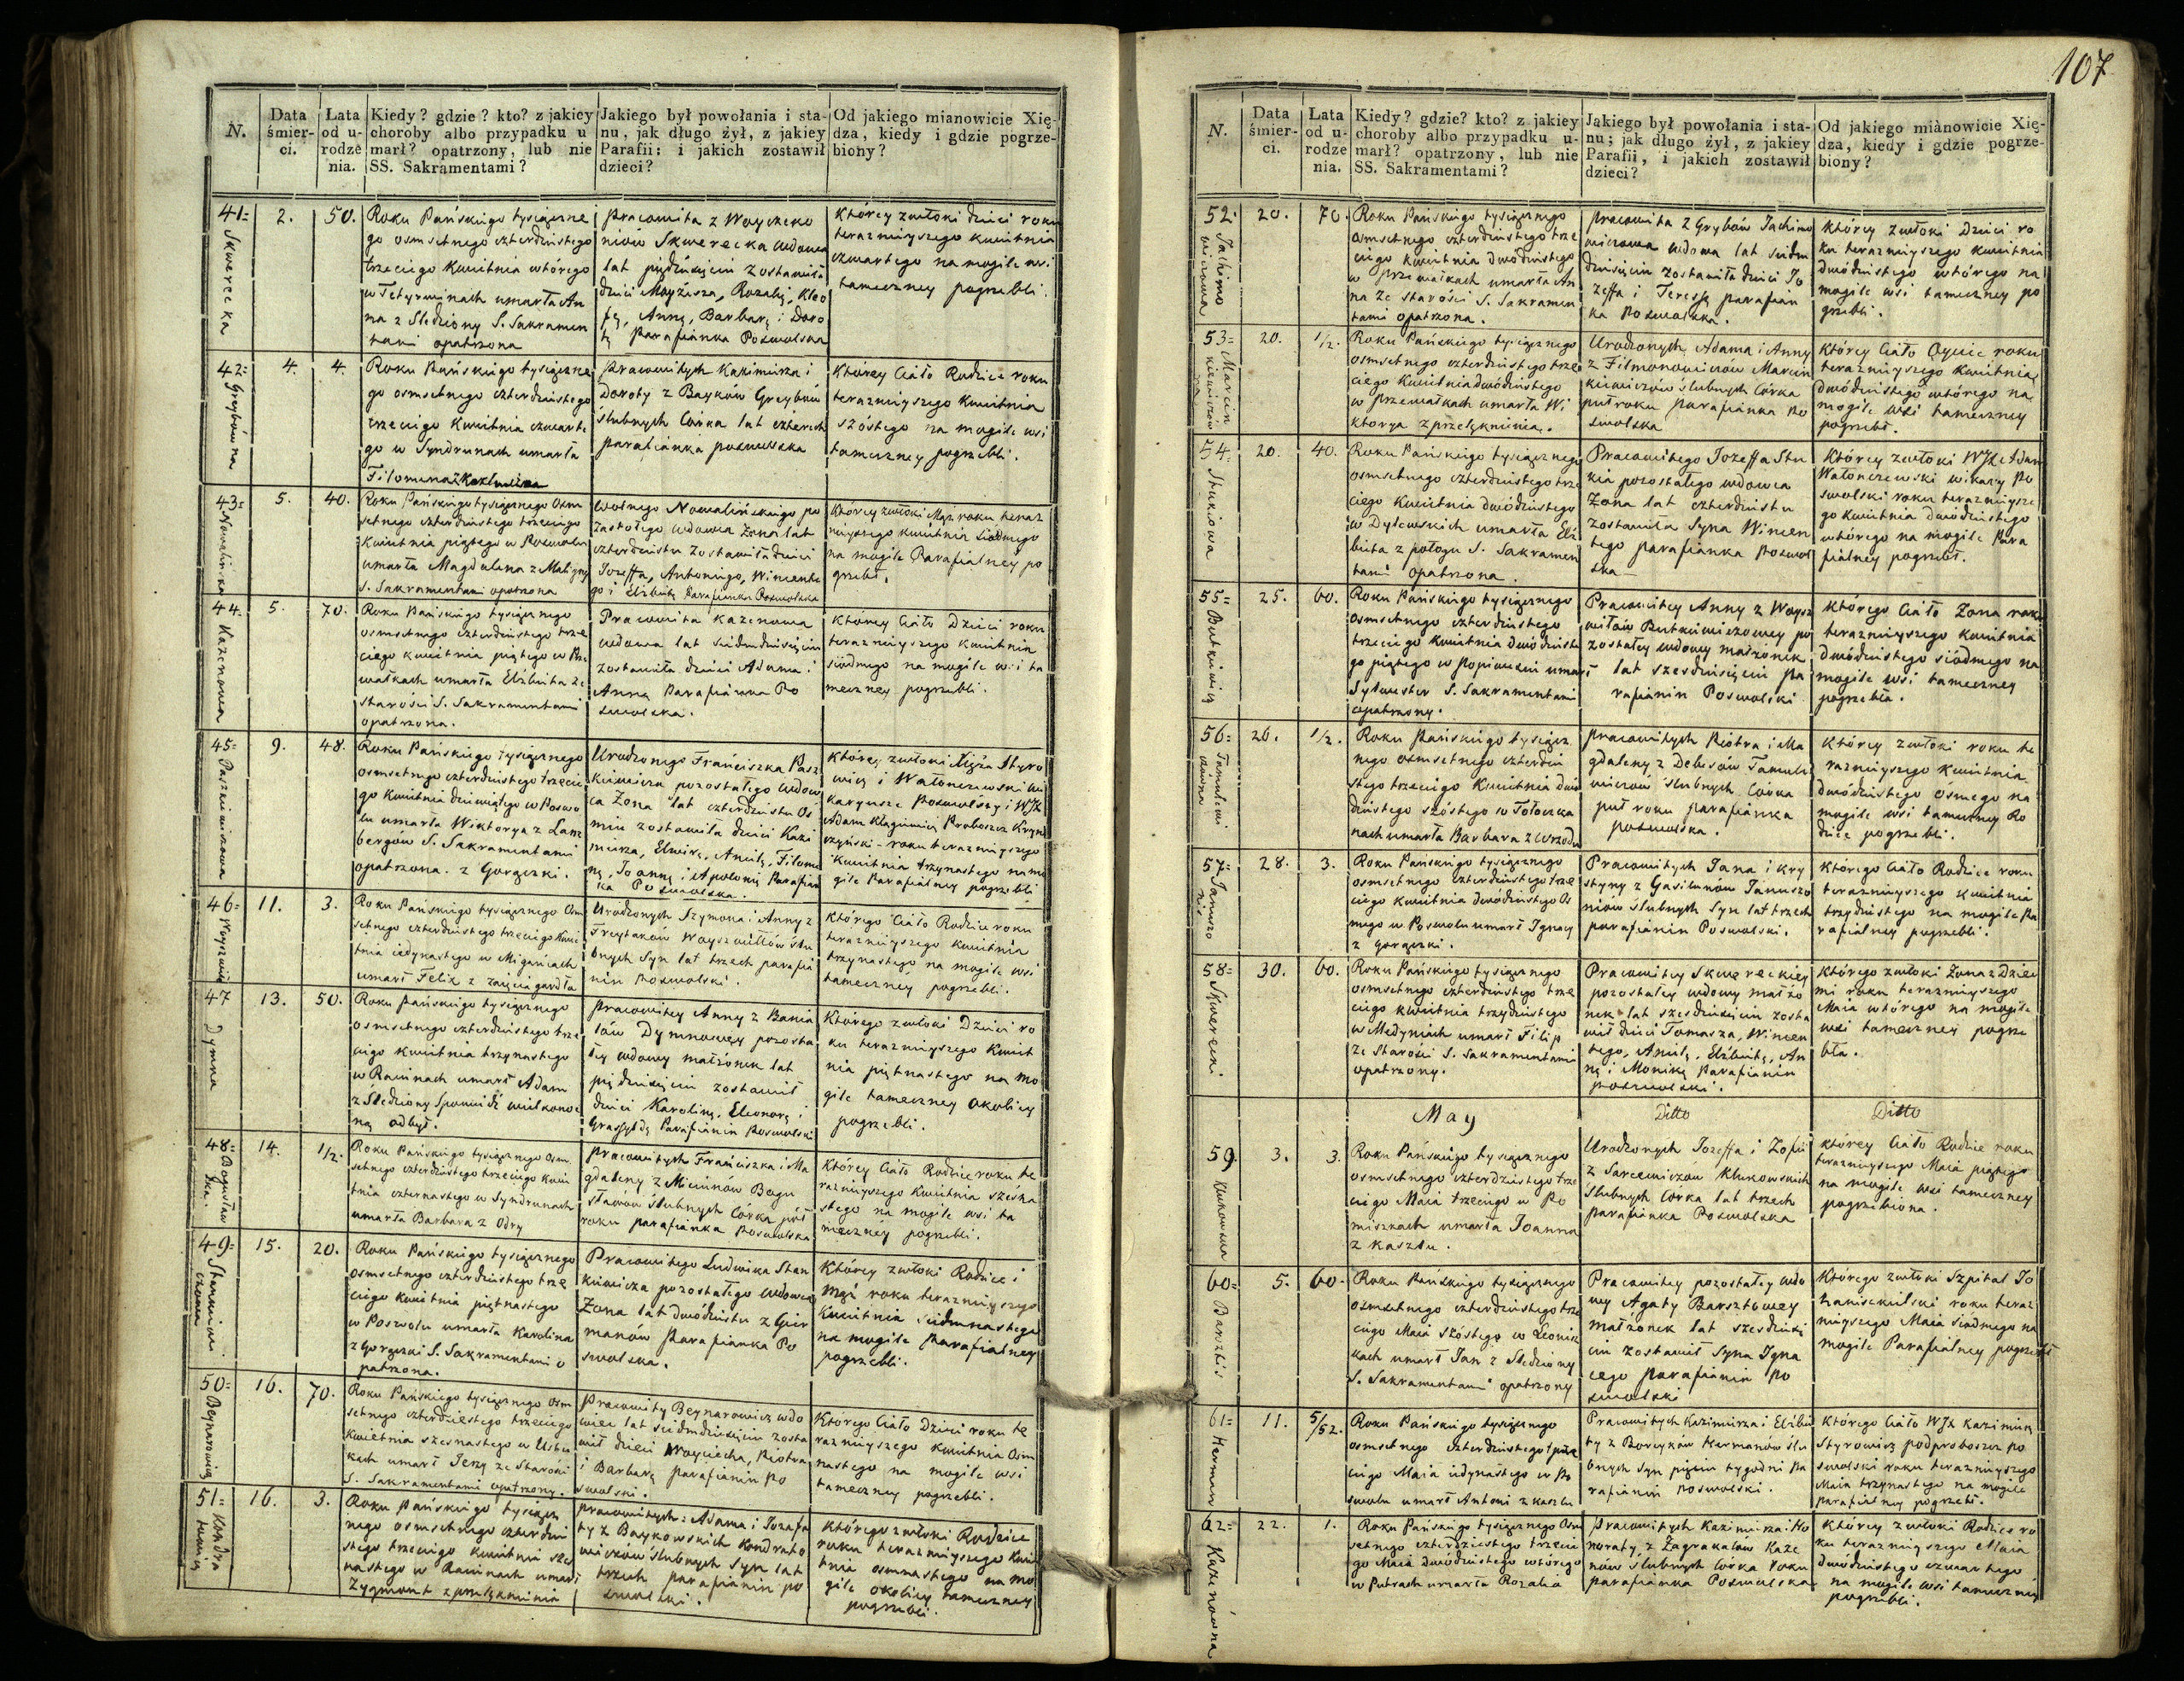 107
N.
Data śmierci.
Lata od urodzenia.
Kiedy? gdzie? kto? z jakiey
choroby albo przypadku u
marł? opatrzony, lub nie
SS. Sakramentami?
Jakiego był powołania i sta-
nu, jak długo żył, z jakiey
Parafii: i jakich zostawił
dzieci?
Od jakiego mianowicie Xię-
dza, kiedy i gdzie pogrze-
biony?
41=
Skwerzeka
2.
50.
Roku Pańskiego tysiączne
go osmsetnego czterdziestego
trzeciego Kwietnia wtórego
umarła An
na z Sledziony S. Sakramen
tami opatrzona
Pracowita z Woyczeko
niów Skwerecka wdowa
lat pięćdziesięciu zostawiła
dzieci Moyżesza, Rozalię, Kleo
fę, Annę, Barbarę i Doro
tę Parafianka Poswolska
Którey zwłoki dzieci roku
teraznieyszego kwietnia
czwartego na mogile wsi
tameczney pogrzebli.
42=
Grzybówna
4.
4.
Roku Pańskiego tysiączne
go osmsetnego czterdziestego
trzeciego Kwietnia czwarte
go w Syndrunach umarła
Filomena
Pracowitych Kazimierza i
Doroty z Bayków Grzybów
ślubnych Córka lat czterech
parafianka poswolska
Którey Ciało Rodzice roku
teraznieyszego Kwietnia
szóstego na mogile wsi
tameczney pogrzebli.
43=
5.
40.
Roku Pańskiego tysiącznego Osm
setnego czterdziestego trzeciego
Kwietnia piątego w Poswolu
umarła Magdalena z Maligny
S. Sakramentami opatrzona
Wolnego Nowalińskiego po
zostałego wdowca Żona lat
czterdziestu zostawiła dzieci
Jozeffa, Antoniego, Wincente
go i Elżbietę Parafianka Poswolska
Którey zwłoki Mąż roku teraz
nieyszego kwietnia siódmego
na mogile Parafialney po
grzebł.
44.
Kazenowa
5.
70.
Roku Pańskiego tysiącznego
osmsetnego czterdziestego trze
ciego kwietnia piątego w Prze
wałkach umarła Elżbieta ze
starości S. Sakramentami
opatrzona.
Pracowita Kazenowa
wdowa lat siedmdziesięciu
zostawiła dzieci Adama i
Annę Parafianka Po
swolska.
Ktorey Ciało Dzieci roku
teraznieyszego kwietnia
siódmego na mogile wsi ta
meczney pogrzebli.
45=
9.
48.
Roku Pańskiego tysiącznego
osmsetnego czterdziestego trzecie
go Kwietnia dziewiątego w Poswo
lu umarła Wiktorya z Lam
bergów S. Sakramentami
opatrzona. z Gorączki.
Urodzonego Franciszka Pasz
kiewicza pozostałego wdow
ca Żona lat czterdziestu Os
miu zostawiła dzieci Kazi
mierza, Elwirę, Anielę, Filome
nę, Joannę i Apolonię Parafian
ka Poswolska.
Którey zwłoki Xięża Styro
wicz i Watonczewski Wi
karyusze Poswolscy i WJX
Adam Proboszcz
roku teraznieyszego
Kwietnia trzynastego na mo
gile Parafialney pogrzebli
46=
11.
3.
Roku Pańskiego tysiącznego Osm
setnego czterdziestego trzeciego Kwie
tnia iedynastego w Migańcach
umarł Felix z zaięcia gardła
Urodzonych Szymona i Anny z
Freytaków Woyszwiłłów ślu
bnych Syn lat trzech parafia
nin Poswolski.
Którego Ciało Rodzice roku
teraznieyszego kwietnia
trzynastego na mogile wsi
tameczney pogrzebli.
47
Dymna
13.
50.
Roku Pańskiego tysiącznego
osmsetnego czterdziestego trze
ciego kwietnia trzynastego
w Rawinach umarł Adam
z Śledziony Spowiedź wielkanoc
ną odbył.
Pracowitey Anny z Bania
łów Dymnowey pozosta
łey wdowy małżonek lat
pięćdziesięciu zostawił
dzieci Karolinę, Eleonorę i
Parafianin Poswolski
Którego zwłoki Dzieci ro
ku teraznieyszego Kwiet
nia piętnastego na mo
gile tameczney okolicy
pogrzebli.
48=
Bogusławska.
14.
1/2.
Roku Pańskiego tysiącznego Osm
setnego czterdziestego trzeciego Kwie
tnia czternastego w Syndrunach
umarła Barbara z Odry
Pracowitych Franciszka i Ma
gdaleny z Miciunów Bogu
sławów ślubnych Córka pół
roku parafianka Poswolska
Którey Ciało Rodzice roku te
raznieyszego Kwietnia szesna
stego na mogile wsi ta
meczney pogrzebli.
49=
Stankiewiczowa
15.
20.
Roku Pańskiego tysiącznego
osmsetnego czterdziestego trze
ciego kwietnia piętnastego
w Poswolu umarła Karolina
z Gorączki S. Sakramentami o
patrzona.
Pracowitego Ludwika Stan
kiewicza pozostałego wdowca
Żona lat dwódziestu z Gier
manów Parafianka Po
swolska.
Którey zwłoki Rodzice i
Mąż roku teraznieyszego
Kwietnia siedmnastego
na mogile Parafialney
pogrzebli.
50=
Beynarowicz
16.
70.
Roku Pańskiego tysiącznego Osm
setnego czterdziestego trzeciego
Kwietnia szesnastego w
umarł Jerzy ze Starości
S. Sakramentami opatrzony.
Pracowity Beynarowicz wdo
wiec lat siedmdziesięciu zosta
wił dzieci Woyciecha, Piotra
i Barbarę parafianin Po
swolski.
Którego Ciało Dzieci roku te
raznieyszego kwietnia Osm
nastego na mogile wsi
tameczney pogrzebli.
51=
Kondratowicz
16.
3.
Roku Pańskiego tysiącz
nego osmsetnego czterdzie
stego trzeciego kwietnia szes
nastego w Rawinach umarł
Zygmunt z przelęknienia
Pracowitych: Adama i Jozefa
ty z Baykowskich Kondrato
wiczów ślubnych Syn lat
trzech parafianin po
swolski.
Którego zwłoki Rodzice
roku teraznieyszego Kwie
tnia osmnastego na mo
gile okolicy tameczney
pogrzebli.
N.
Data śmierci.
Lata od urodzenia.
Kiedy? gdzie? kto? z jakiey
choroby albo przypadku u-
marł? opatrzony, lub nie
SS. Sakramentami?
Jakiego był powołania i sta-
nu; jak długo żył, z jakiey
Parafii, i jakich zostawił
dzieci?
Od jakiego miànowicie Xię-
dza, kiedy i gdzie pogrze-
biony?
52.
Jachimowiczowa
20.
70.
Roku Pańskiego tysiącznego
Osmsetnego czterdziestego trze
ciego kwietnia dwódziestego
w Przewałkach umarła An
na ze Starości S. Sakramen
tami opatrzona.
Pracowita z Grybów Jachimo
wiczowa wdowa lat siedm
dziesięciu zostawiła dzieci Jo
zeffa i Teressę parafian
ka Poswolska.
Którey zwłoki Dzieci ro
ku teraznieyszego kwietnia
dwódziestego wtórego na
mogile wsi tameczney po
grzebli.
53=
20.
1/2.
Roku Pańskiego tysiącznego
osmsetnego czterdziestego trze
ciego Kwietnia dwódziestego
w Przewałkach umarła Wi
ktorya z przelęknienia.
Urodzonych Adama i Anny
z Filmonowiczów Marcin
kiewiczów ślubnych Córka
puł roku parafianka Po
swolska
Którey Ciało Oyciec roku
teraznieyszego Kwietnia
dwódziestego wtórego na
mogile wsi tameczney
pogrzebł.
54=
Stukiowa
20.
40.
Roku Pańskiego tysiącznego
osmsetnego czterdziestego trze
ciego Kwietnia dwódziestego
w Dylewskich umarła Elż
bieta z połogu S. Sakramen
tami opatrzona.
Pracowitego Jozeffa Stu
kia pozostałego wdowca
Żona lat czterdziestu
zostawiła Syna Wincen
tego parafianka Poswol
ska
Którey zwłoki WJX Adam
Watonczewski wikary Po
swolski roku teraznieysze
go kwietnia dwódziestego
wtórego na mogile Para
fialney pogrzebł.
55=
Butkiewicz
25.
60.
Roku Pańskiego tysiącznego
osmsetnego czterdziestego
trzeciego kwietnia dwódzieste
go piątego w Popiwesiu umarł
Sylwester S. Sakramentami
opatrzony.
Pracowitey Anny z Woysz
wiłów Butkiewiczowey po
zostałey wdowy małżonek
lat szesdziesięciu pa
rafianin Poswolski
Którego Ciało Żona roku
teraznieyszego kwietnia
dwódziestego siódmego na
mogile wsi tameczney
pogrzebła.
56=
26.
1/2.
Roku Pańskiego tysiącz
nego osmsetnego czterdzie
stego trzeciego Kwietnia dwó
dziestego szóstego w Tołoczka
nach umarła Barbara z Wrzodu
Pracowitych Piotra i Ma
gdaleny z Debesów Tamule
wiczów ślubnych Córka
puł roku parafianka
poswolska.
Którey zwłoki roku te
raznieyszego kwietnia
dwódziestego osmego na
mogile wsi tameczney Ro
dzice pogrzebli.
57=
Januszonis
28.
3.
Roku Pańskiego tysiącznego
osmsetnego czterdziestego trze
ciego kwietnia dwódziestego Os
mego w Poswolu umarł Ignacy
z gorączki.
Pracowitych Jana i Kry
styny z Gasiunów Januszo
niów ślubnych Syn lat trzech
parafianin Poswolski.
Którego Ciało Rodzice roku
teraznieyszego kwietnia
trzydziestego na mogile Pa
rafialney pogrzebli.
58=
Skwerecki
30.
60.
Roku Pańskiego tysiącznego
osmsetnego czterdziestego trze
ciego kwietnia trzydziestego
w Medyniach umarł Filip
ze Starości S. Sakramentami
opatrzony.
Pracowitey Skwereckiey
pozostałey wdowy małżo
nek lat szesdziesięciu zosta
wił dzieci Tomasza, Wincen
tego, Anielę, Elżbietę, An
nę i Monikę Parafianin
poswolski.
Którego zwłoki Żona z Dzieć
mi roku teraznieyszego
Maia wtórego na mogile
wsi tameczney pogrze
bła.
May
Ditto
Ditto
59.
3.
3.
Roku Pańskiego tysiącznego
osmsetnego czterdziestego trze
ciego Maia trzeciego w Po
miszkach umarła Joanna
z Kaszlu.
Urodzonych Jozeffa i Zofii
z Sarcewiczów Klukowskich
Ślubnych Córka lat trzech
parafianka Poswolska
Którey Ciało Rodzice roku
teraznieyszego Maia piątego
na mogile wsi tameczney
pogrzebiona.
60=
Barsztis
5.
60.
Roku Pańskiego tysiącznego
osmsetnego czterdziestego trze
ciego Maia szóstego w Leonisz
kach umarł Jan z Sledziony
S. Sakramentami opatrzony
Pracowitey pozostałey wdo
wy Agaty Barsztowey
małżonek lat szesdziesię
ciu zostawił Syna Igna
cego Parafianin Po
swolski
Którego zwłoki Szpital Jo
haniszkielski roku teraz
nieyszego Maia siódmego na
mogile Parafialney pogrzebł
61=
Herman
11.
5/52.
Roku Pańskiego tysiącznego
osmsetnego czterdziestego trze
ciego Maia iedynastego w Po
swolu umarł Antoni z kaszlu
Pracowitych Kazimierza i Elżbie
ty z Borcyków Hermanów ślu
bnych Syn pięciu tygodni Pa
rafianin Poswolski.
Którego Ciało WJX Kazimierz
Styrowicz podproboszcz Po
swolski roku teraznieyszego
Maia trzynastego na mogile
parafialney pogrzebł.
62=
Kazenówna
22.
1.
Roku Pańskiego tysiącznego Osm
setnego czterdziestego trzecie
go Maia dwódziestego wtórego
w Putrach umarła Rozalia
Pracowitych Kazimierza i Ho
noraty z Zagrakałow Kaze
nów ślubnych Córka roku
parafianka Poswolska
Którey zwłoki Rodzice ro
ku teraznieyszego Maia
dwódziestego czwartego
na mogile wsi tameczney
pogrzebli.